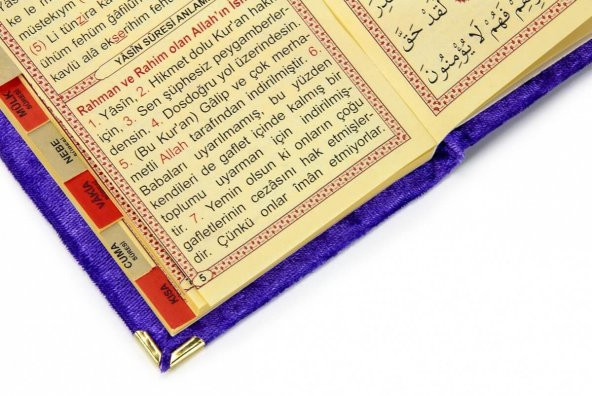 ke le m
müstekıym
(5) Li tünzira ka
ühüm fehüm ğâfilün
kavlü alâ ekserihim fehüm
YÂSİN SÛRESİ ANLAM
Rahman ve Rahim olan Allah'ın İsm
1. Yâsin, 2. Hikmet dolu Kur'an hakkı
için, 3. Sen şüphesiz peygamberler-
densin. 4. Dosdoğru yol üzerindesin.
5. (Bu Kur'an) Gâlip ve çok merha-
metli Allah tarafından indirilmiştir. 6.
Babaları uyarılmamış, bu yüzden
kendileri de gaflet içinde kalmış bir
toplumu uyarman için indirilmiş-
tir. 7. Yemin olsun ki onların çoğu
gafletlerinin cezâsını hak etmişler-
dir. Çünkü onlar îmân etmiyorlar.
5
MÜLK
SÛRESİ
NEBE
SÛRESİ
VÂKIA
CUMA
SÛRESİ
KISA
لَقَدْ حَقَّ
فَهُمْ لَا يُؤْمِنُونَ